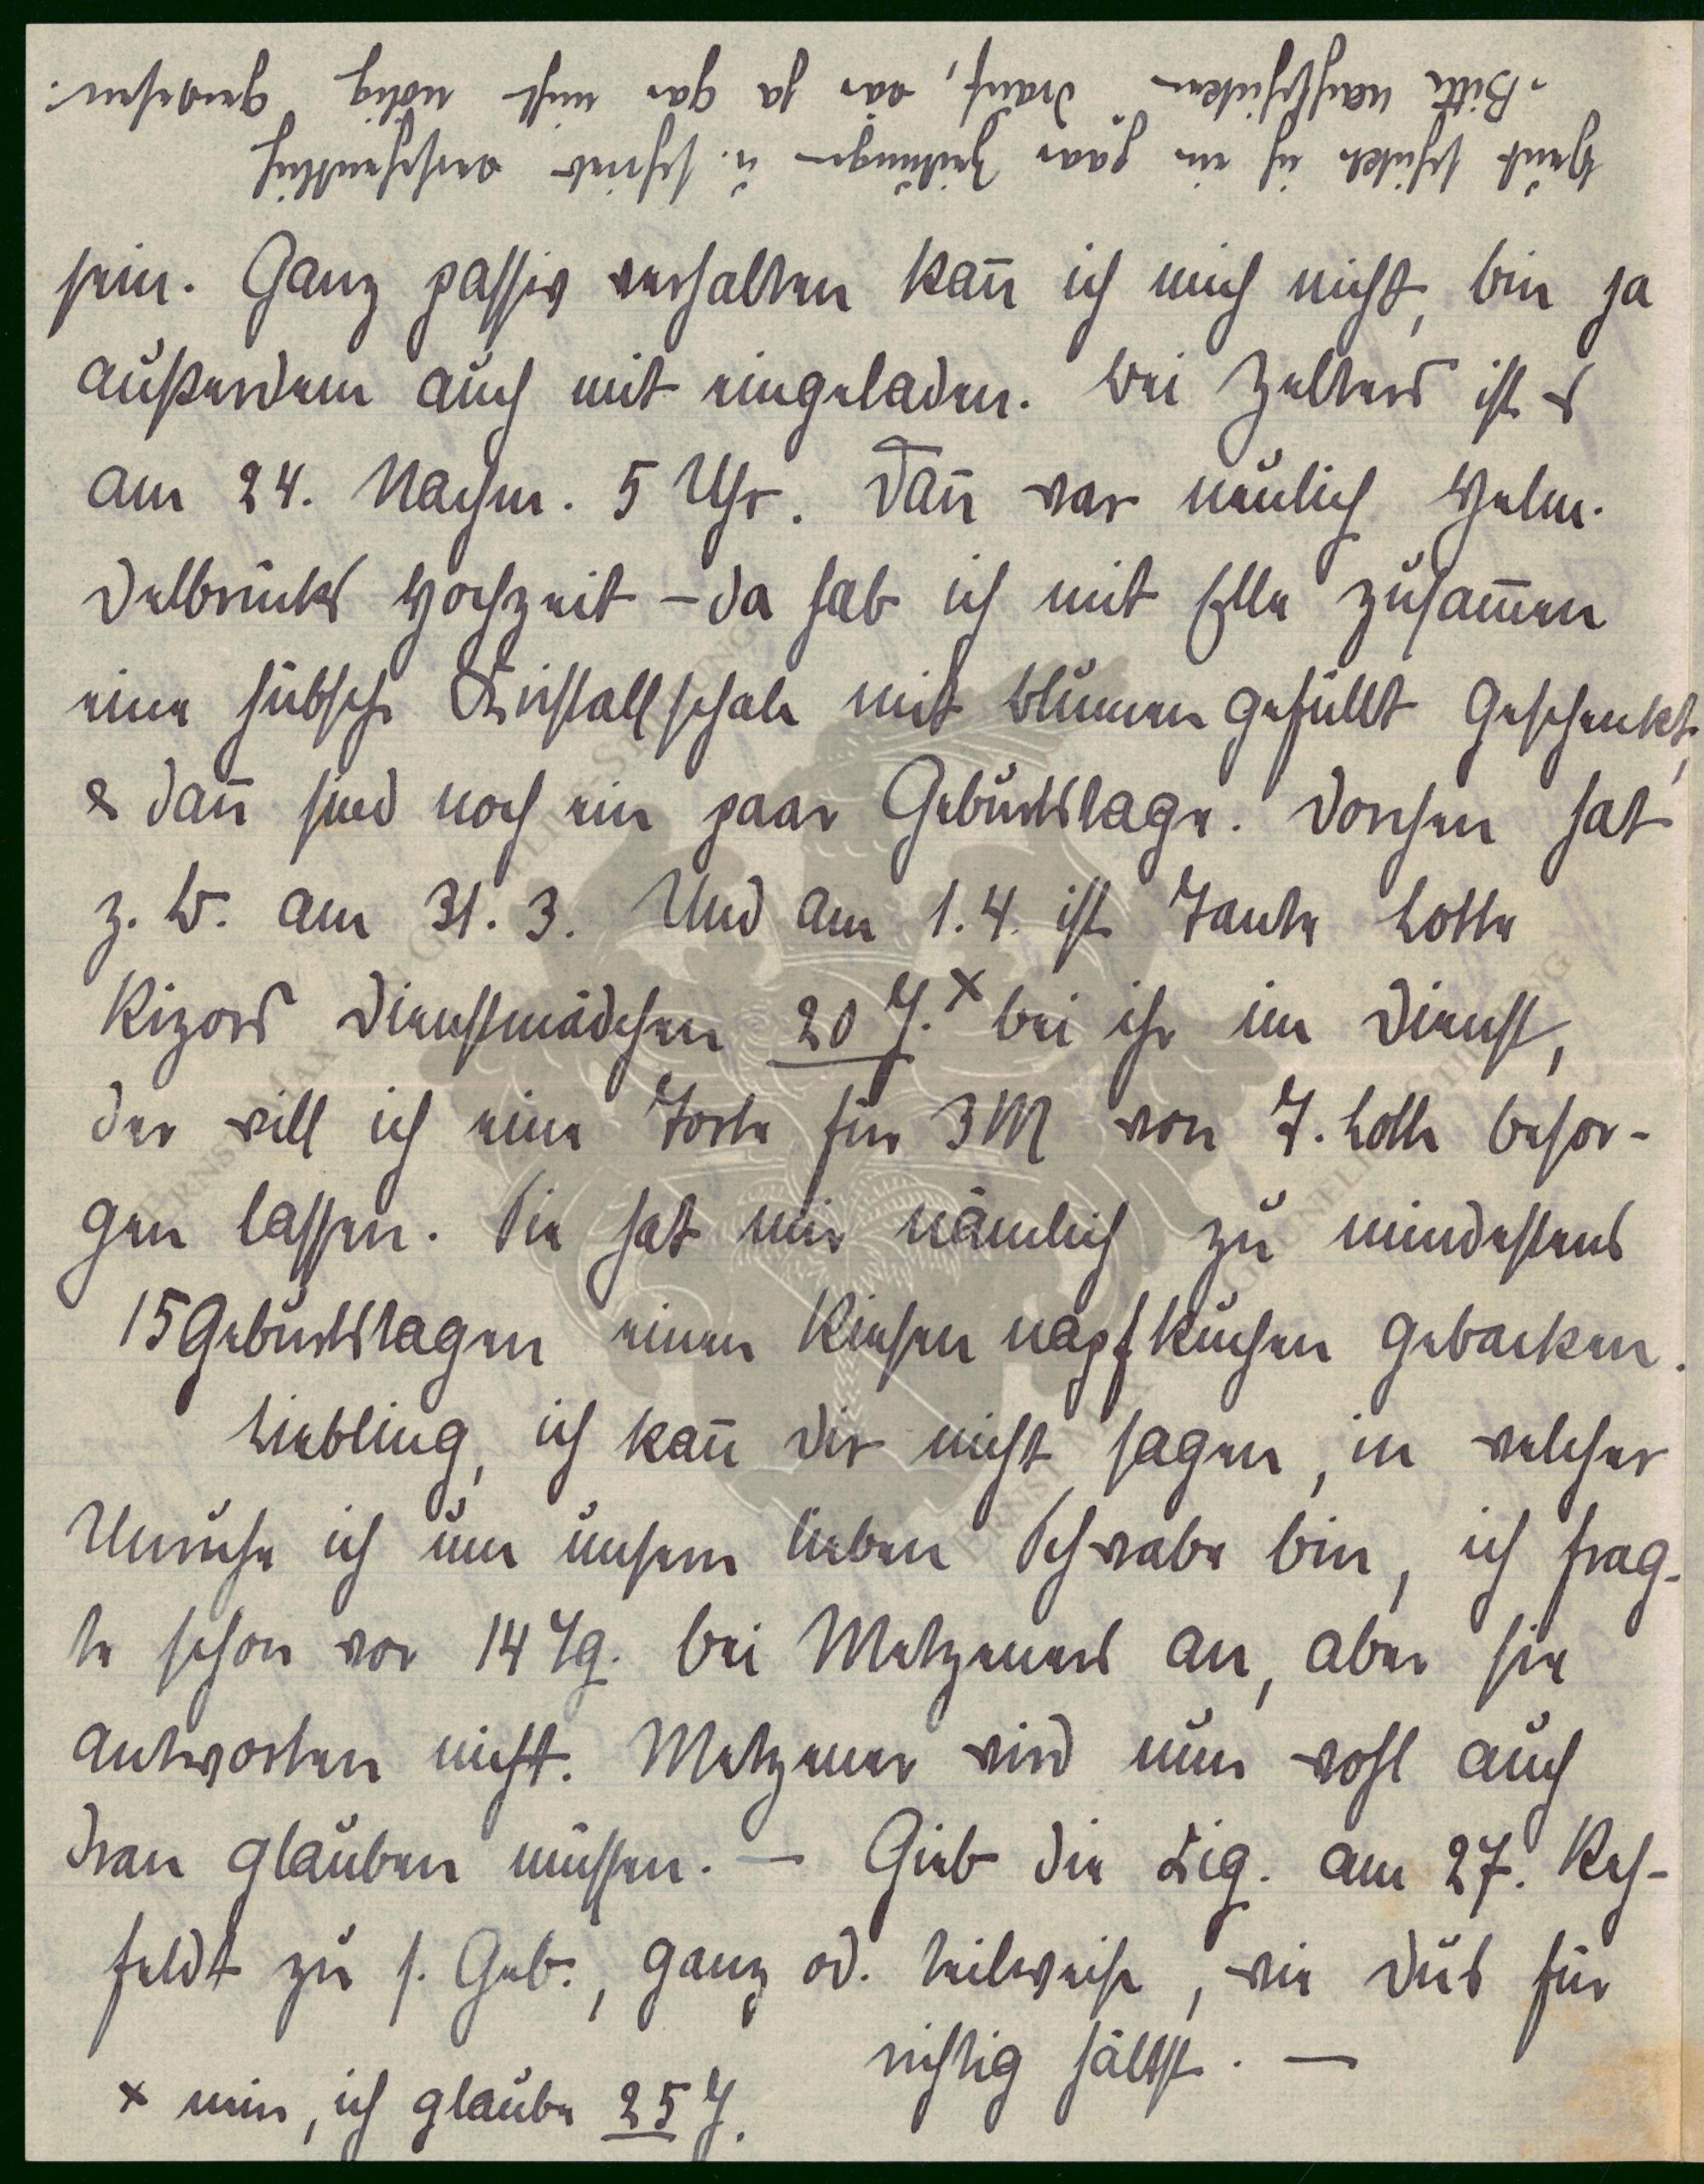 Heut schickte ich ein paar Zeitungen u. schrieb versehentlich
„Bitte nachschicken“ drauf, war ja gar nicht nötig gewesen.
sein. Ganz passiv verhalten kann ich mich nicht, bin ja
außerdem auch mit eingeladen. Bei Zelters ist es
am 24. Nachm. 5 Uhr. Dann war neulich Helm.
Delbrücks Hochzeit – da hab ich mit Elle zusammen
eine hübsche Kristallschale mit Blumen gefüllt geschenkt,
& dann sind noch ein paar Geburtstage. Dorchen hat
z. B. am 31. 3. Und am 1. 4. ist Tante Lotte
Rizors Dienstmädchen 20 J. x bei ihr im Dienst,
der will ich eine Torte für 3 M von T. Lotte besor-
gen lassen. Sie hat mir nämlich zu mindestens
15 Geburtstagen einen Riesennapfkuchen gebacken.
Liebling, ich kann Dir nicht sagen, in welcher
Unruhe ich um unsern lieben Schwabe bin, ich frag-
te schon vor 14 Tg. bei Metzeners an, aber sie
antworten nicht. Metzener wird nun wohl auch
dran glauben müssen. – Gieb die Zig. am 27. Reh-
feldt zu s. Geb., ganz od. teilweise, wie Dus für
richtig hältst. –
x nein, ich glaube 25 J.